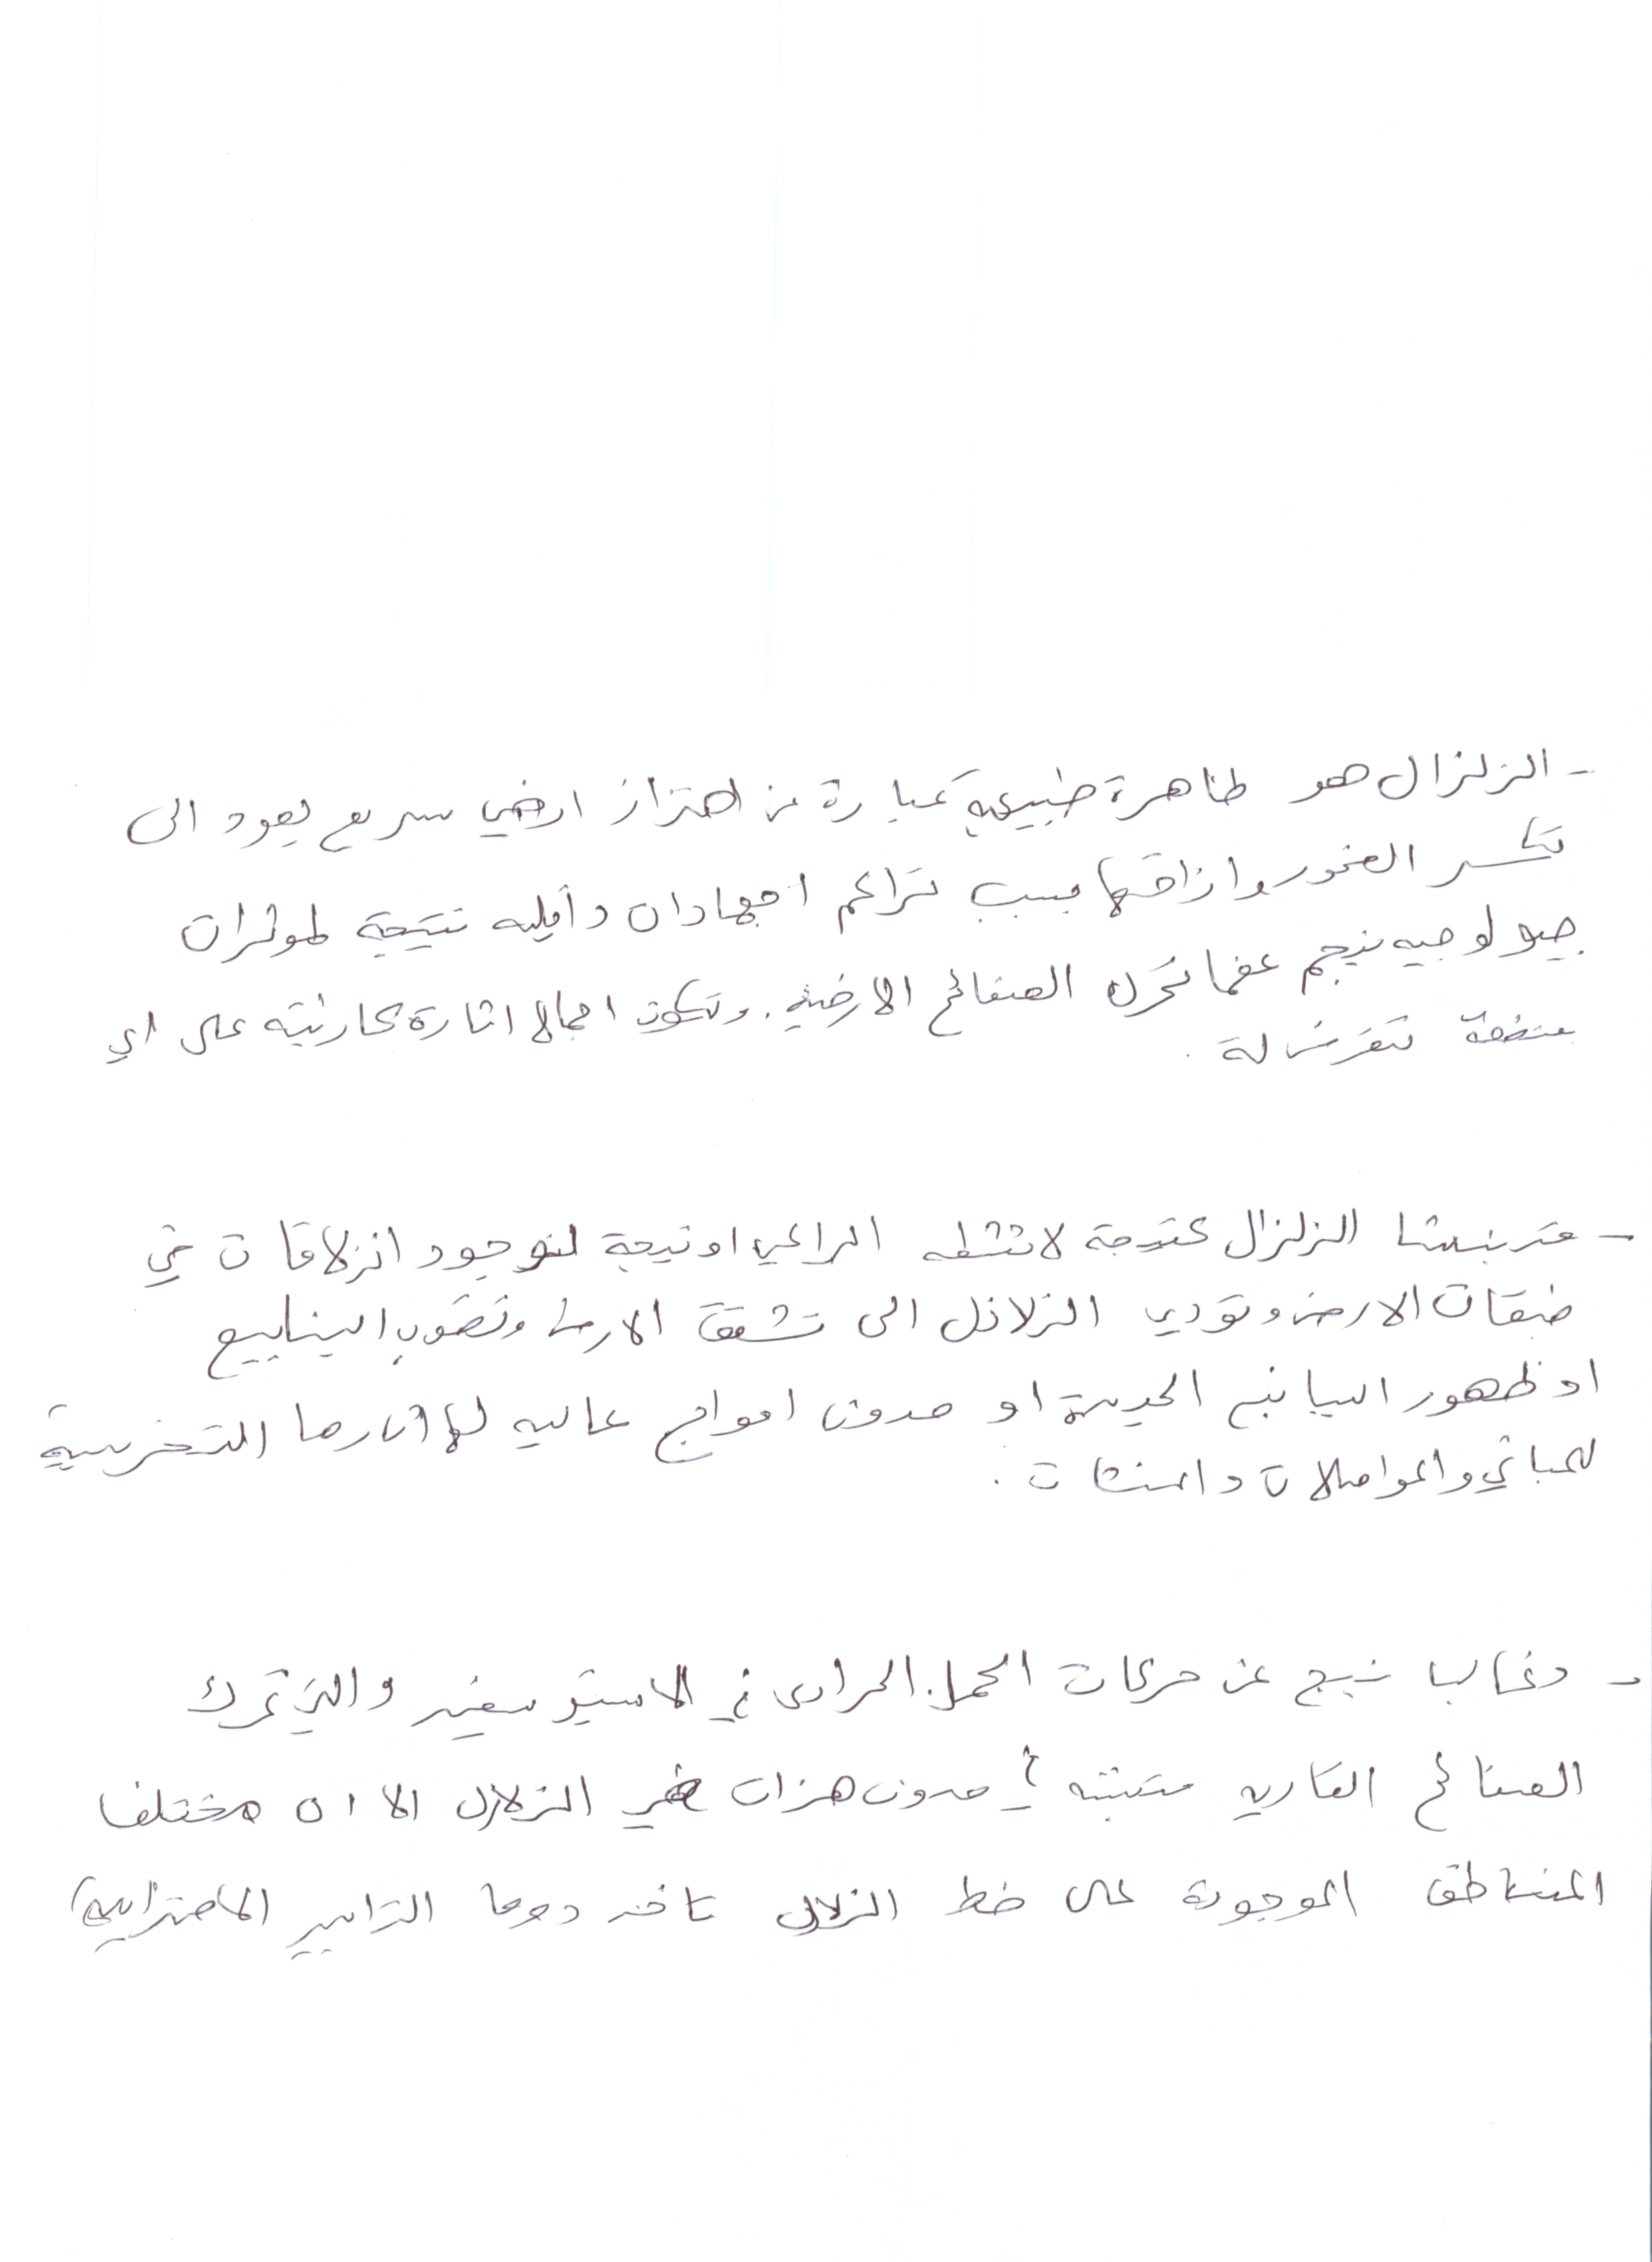 - الزلزال هو ظاهرة طبيعية عبارة عن اهتزاز ارضي سريع يعود الى
تكسر الصخور وازاحتها بسبب تراكم اجهادات داخليه نتيجة لمؤثرات
جيولوجيه ينجم عنها تحرك الصفائح الارضيه. وتكون اجمالا اثارة كارثيه على اي
منطقة تتعرض لة.
- قد ينشا الزلزال كنتيجة لانشطه البراكين او نتيجة لوجود انزلاقات في
طبقات الارض وتؤدي الزلازل الى تشقق الارض ونضوب الينابيع
او ظهور الينابيع الجديدة او حدوث امواج عاليه لها اثارها التخريبية
للمباني والمواصلات والمنشات.
- وغالبا ينتج عن حركات الحمل الحراري في الاستينوسفير والتي تحرك
الصفائح القاريه متسببه في حدوث هزات هي الزلازل الا ان مختلف
المناطق الموجودة على خط الزلازل تاخذ دوما التدابير الاحترازيه